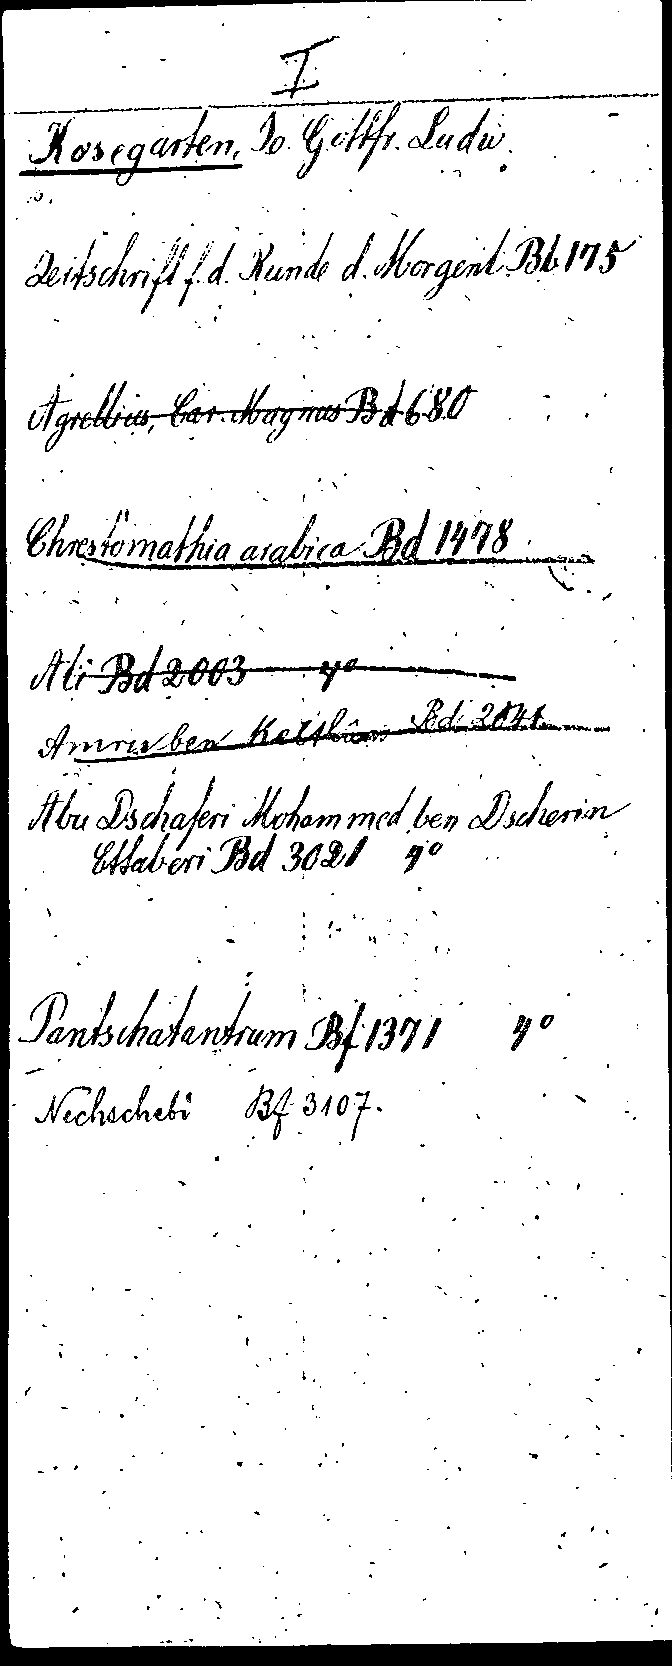 I
Kosegarten, Jo. Gottfr. Ludw.
Zeitschrift f. d. Kunde d. Morgenl. Bb 175
Agrellius, Car. Magnus Bd 680
Chrestomathia arabica Bd 1478
Ali Bd 2003 4°
Amru ben Kelthûm Bd 2041
Abu Dschaferi Mohammed ben Dscherin
Ettaberi Bd 3021 4°
Pantschatantrum Bf 1371 4°
Nechschebi Bf 3107.